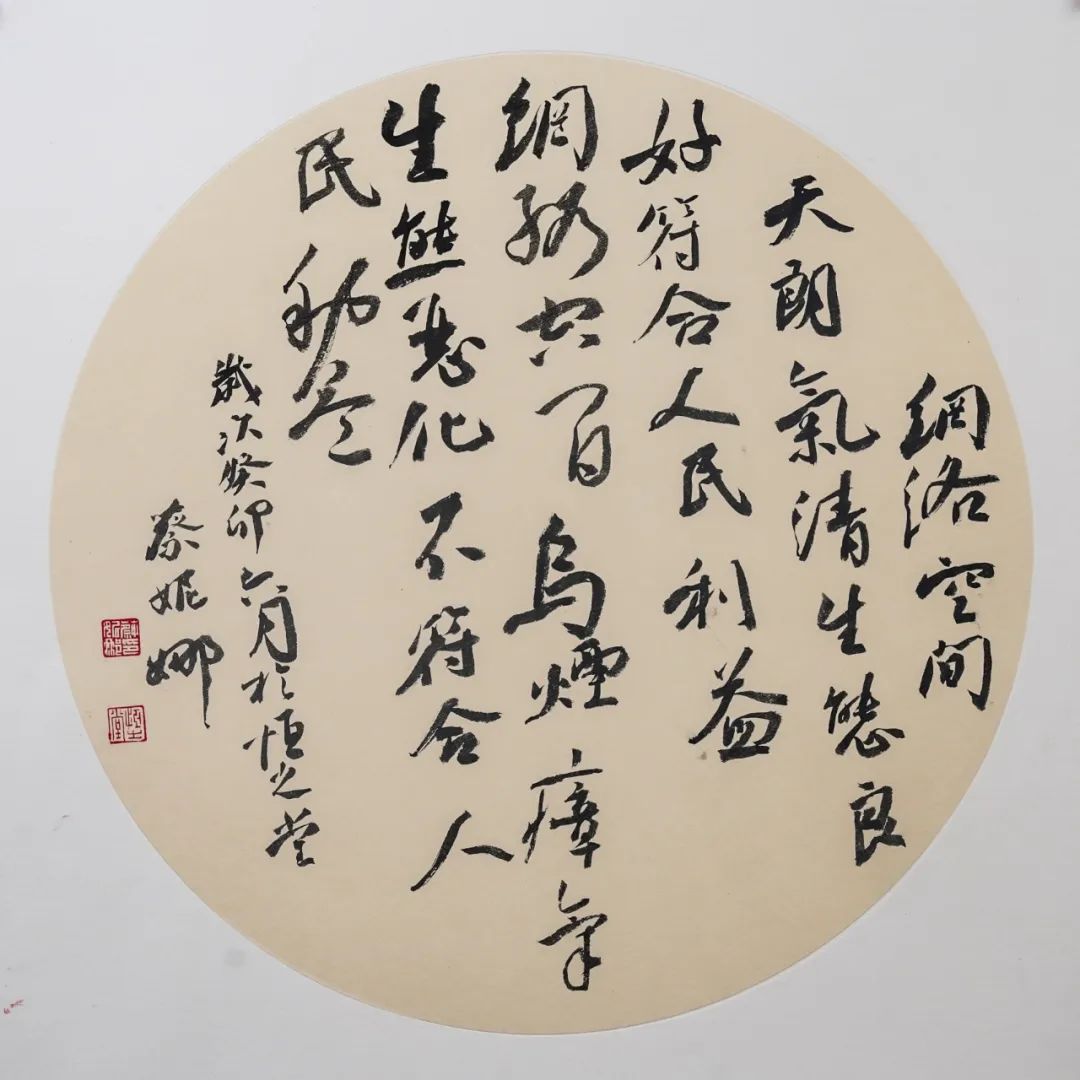 網洛空間
天朗氣清生態良
好符合人民利益
網絡空間烏煙瘴氣
生態惡化不符合人
民利益
歲次癸卯六月於恒之堂
蔡妮娜